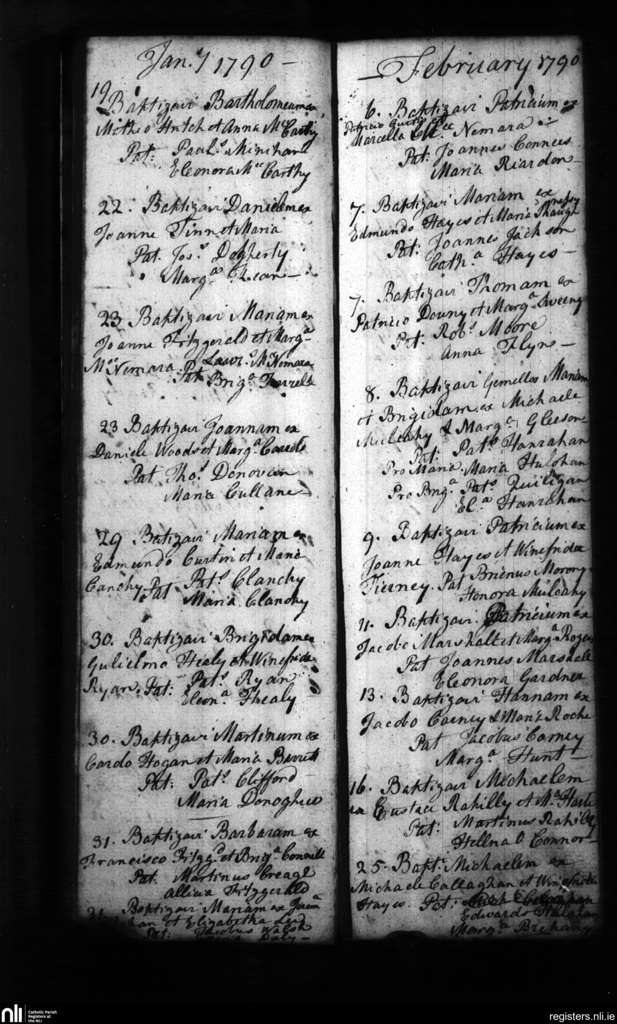 Jan.y 1790 —
19 Baptizavi Bartholomeum ex
et Anna Mc Carthy
Pat: Paul.s
Eleonora Mc Carthy
22. Baptizavi Danielem ex
Joanne Finn et Maria
Pat. Jos.s Dogherty
Marg.a Kean —
23 Baptizavi Mariam ex
Joanne Fitzgerald et Marg.a
Mc Nemara. Pat. Laur.s McNemara
Brig.a
23 Baptizavi Joannam ex
Daniele Woods et Marg.a
Pat Tho.s Donovan
Maria Cullane
29 Batizavi Mariam ex
Edmundo Curtin et Maria
Canchy Pat Pat.s Clanchy
Maria Clanchy
30. Baptizavi Brigidam ex
Gulielmo Healy et Winefrida
Ryan. Pat: Pat.s Ryan
Eleon.a Healy —
30. Baptizavi Martinum ex
Cardo Hogan et Maria Barrett
Pat: Pat.s Clifford
Maria Donoghue
31. Baptizavi Barbaram ex
Francisco Fitzg.d et Brig.a Connell
Pat. Martinus Creagh
Fitzgerald
31. Baptizavi Mariam ex
et Elizabetha
Pat: Jacobus Walsh
Daly —
— February 1790
6. Baptizavi Patricium ex
Patricio
Marcella Mc Nemara —
Pat: Joannes Conners
Maria Riardon —
7. Baptizavi Mariam ex
Edmundo Hayes et Maria
Pat: Joannes Jackson
Cath.a Hayes —
7. Baptizavi Thomam ex
Patricio Douny et Marg.a Sweeny
Pat: Rob.s Moore
Anna Flyn —
8. Baptizavi Gemellas Mariam
et Brigidam ex Michaele
Mulcahy & Marg.a Gleeson
Pat: Pat.s Hanrahan
Pro Maria Maria
Pro Brig.a Pat.s Quiligan
El.a Hanrahan
9. Baptizavi Patricium ex
Joanne Hayes et Winefrida
Tierney. Pat Brienus Morony
Honora Mulcahy
11. Baptizavi Patricium ex
Jacobo Marshall et Marg.a Rogers
Pat Joannes Marshall
Eleonora Gardner
13. Baptizavi Hannam ex
Jacobo Carney & Maria Roche
Pat Jacobus Carney
Marg.a Hunt —
16. Baptizavi Michaelem
ex Eustace Rahilly et
Pat: Martinus Rahilly
Hellna O Connor —
25. Bapt. Michaelem ex
Michaele Callaghan et Winefrida
Hayes. Pat:
Edwardo
Marg.a
nli
Catholic Parish
Registers at
the NLI
registers.nli.ie